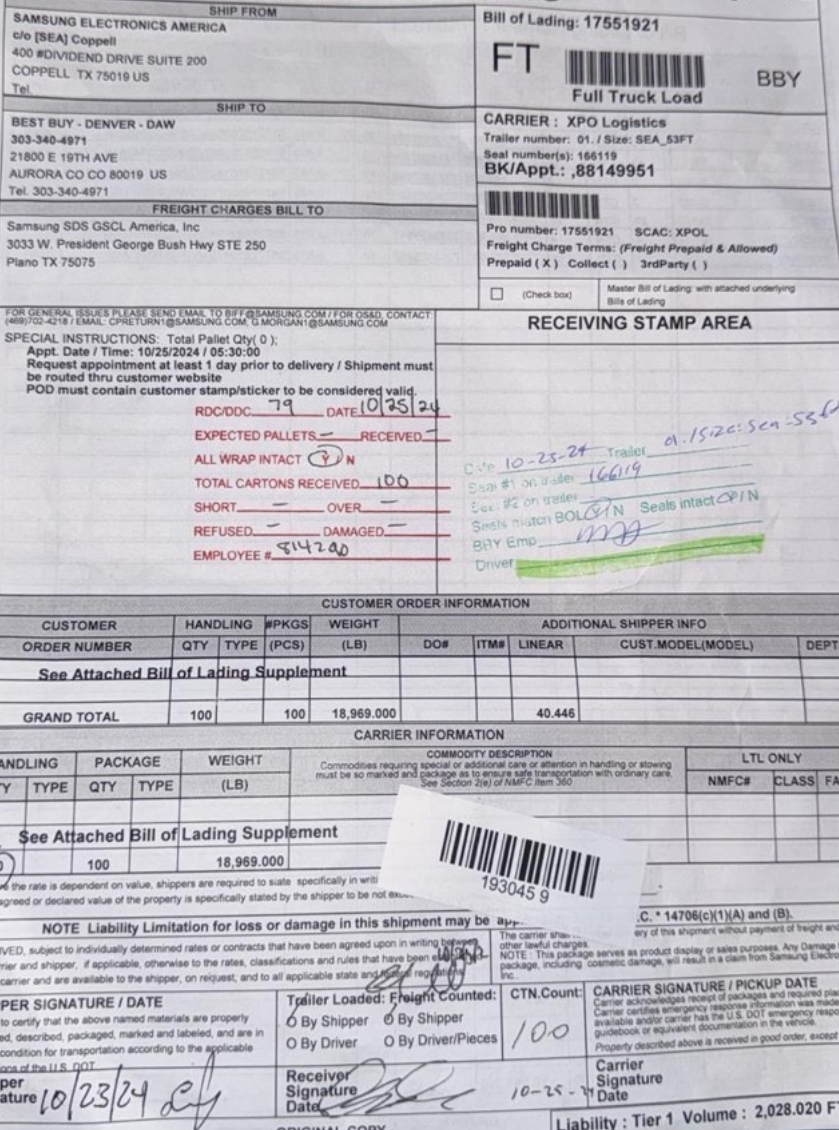 SHIP FROM
SAMSUNG ELECTRONICS AMERICA
c/o [SEA] Coppell
400 #DIVIDEND DRIVE SUITE 200
COPPELL TX 75019 US
Tel.
SHIP TO
BEST BUY - DENVER - DAW
303-340-4971
21800 E 19TH AVE
AURORA CO CO 80019 US
Tel. 303-340-4971
FREIGHT CHARGES BILL TO
Samsung SDS GSCL America, Inc
3033 W. President George Bush Hwy STE 250
Plano TX 75075
Bill of Lading: 17551921
FT
BBY
Full Truck Load
CARRIER : XPO Logistics
Trailer number: 01. / Size: SEA_53FT
Seal number(s): 166119
BK/Appt.: ,88149951
Pro number: 17551921 SCAC: XPOL
Freight Charge Terms: (Freight Prepaid & Allowed)
Prepaid ( X ) Collect ( ) 3rdParty ( )
(Check box)
Master Bill of Lading: with attached underlying
Bills of Lading
FOR GENERAL ISSUES PLEASE SEND EMAIL TO BIFF@SAMSUNG.COM / FOR OS&D, CONTACT:
(469)702-4218 / EMAIL: CPRETURN1@SAMSUNG.COM, G.MORGAN1@SAMSUNG.COM
SPECIAL INSTRUCTIONS: Total Pallet Qty( 0 );
Appt. Date / Time: 10/25/2024 / 05:30:00
Request appointment at least 1 day prior to delivery / Shipment must
be routed thru customer website
POD must contain customer stamp/sticker to be considered valid.
RDC/DDC 79 DATE 10/25/24
EXPECTED PALLETS - RECEIVED -
ALL WRAP INTACT Y / N
TOTAL CARTONS RECEIVED 100
SHORT - OVER -
REFUSED - DAMAGED -
EMPLOYEE # 814290
RECEIVING STAMP AREA
Date 10-25-24 Trailer 01./Size: Sea-53ft
Seal #1 on trailer 166119
Seal #2 on trailer
Seals match BOL Y/N Seals intact Y/N
BBY Emp
Driver
CUSTOMER ORDER INFORMATION
CUSTOMER HANDLING #PKGS WEIGHT ADDITIONAL SHIPPER INFO
ORDER NUMBER QTY TYPE (PCS) (LB) DO# ITM# LINEAR CUST.MODEL(MODEL) DEPT
See Attached Bill of Lading Supplement
GRAND TOTAL 100 100 18,969.000 40.446
CARRIER INFORMATION
ANDLING PACKAGE WEIGHT COMMODITY DESCRIPTION LTL ONLY
Commodities requiring special or additional care or attention in handling or stowing
must be so marked and package as to ensure safe transportation with ordinary care.
See Section 2(e) of NMFC Item 360
Y TYPE QTY TYPE (LB) NMFC# CLASS FA
See Attached Bill of Lading Supplement
100 18,969.000
193045 9
e the rate is dependent on value, shippers are required to state specifically in writi
agreed or declared value of the property is specifically stated by the shipper to be not exce
NOTE Liability Limitation for loss or damage in this shipment may be app .C. * 14706(c)(1)(A) and (B).
IVED, subject to individually determined rates or contracts that have been agreed upon in writing between
rrier and shipper, if applicable, otherwise to the rates, classifications and rules that have been
carrier and are available to the shipper, on request, and to all applicable state and federal regulations
The carrier shal ery of this shipment without payment of freight and
other lawful charges.
NOTE : This package serves as product display or sales purposes. Any Damage
package, including cosmetic damage, will result in a claim from Samsung Electro
Inc.
PER SIGNATURE / DATE
to certify that the above named materials are properly
ed, described, packaged, marked and labeled, and are in
condition for transportation according to the applicable
ions of the U.S. DOT
per
ature 10/23/24
Trailer Loaded: Freight Counted:
By Shipper By Shipper
By Driver By Driver/Pieces
CTN.Count:
100
CARRIER SIGNATURE / PICKUP DATE
Carrier acknowledges receipt of packages and required pla
Carrier certifies emergency response information was made
available and/or carrier has the U.S. DOT emergency respo
guidebook or equivalent documentation in the vehicle.
Property described above is received in good order, except
Receiver
Signature
Date 10-25-24
Carrier
Signature
Date
ORIGINAL COPY
Liability : Tier 1 Volume : 2,028.020 F